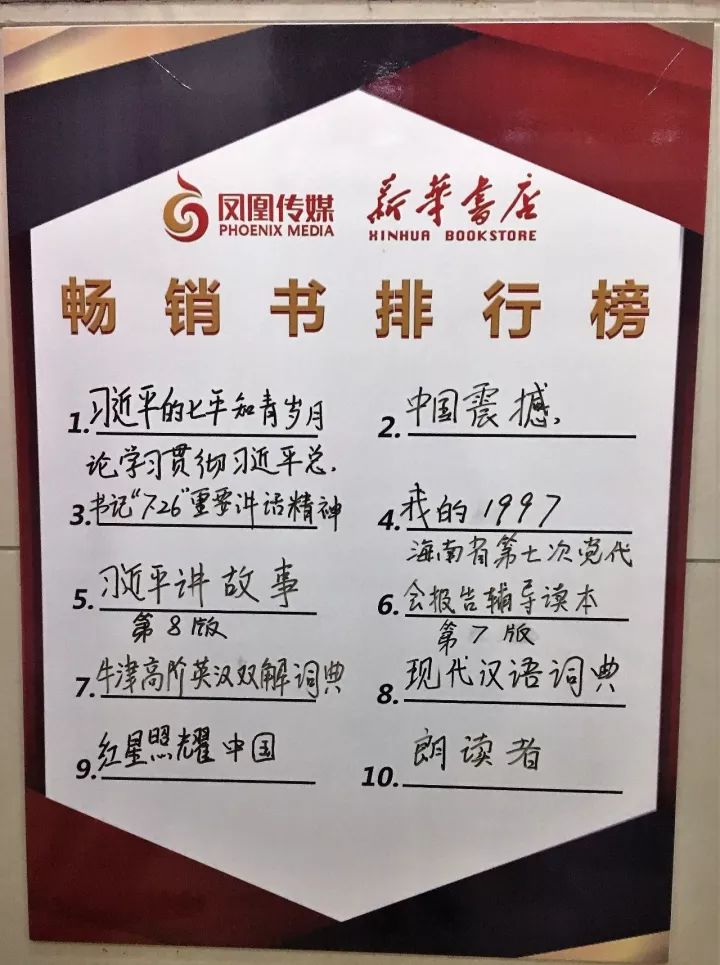 凤凰传媒
PHOENIX MEDIA
新華書店
XINHUA BOOKSTORE
畅销书排行榜
1. 习近平的七年知青岁月
2. 中国震撼.
论学习贯彻习近平总.
3. 书记“7.26”重要讲话精神
4. 我的1997
5. 习近平讲故事
海南省第七次党代
6. 会报告辅导读本
第8版
7. 牛津高阶英汉双解词典
第7版
8. 现代汉语词典
9. 红星照耀中国
10. 朗读者